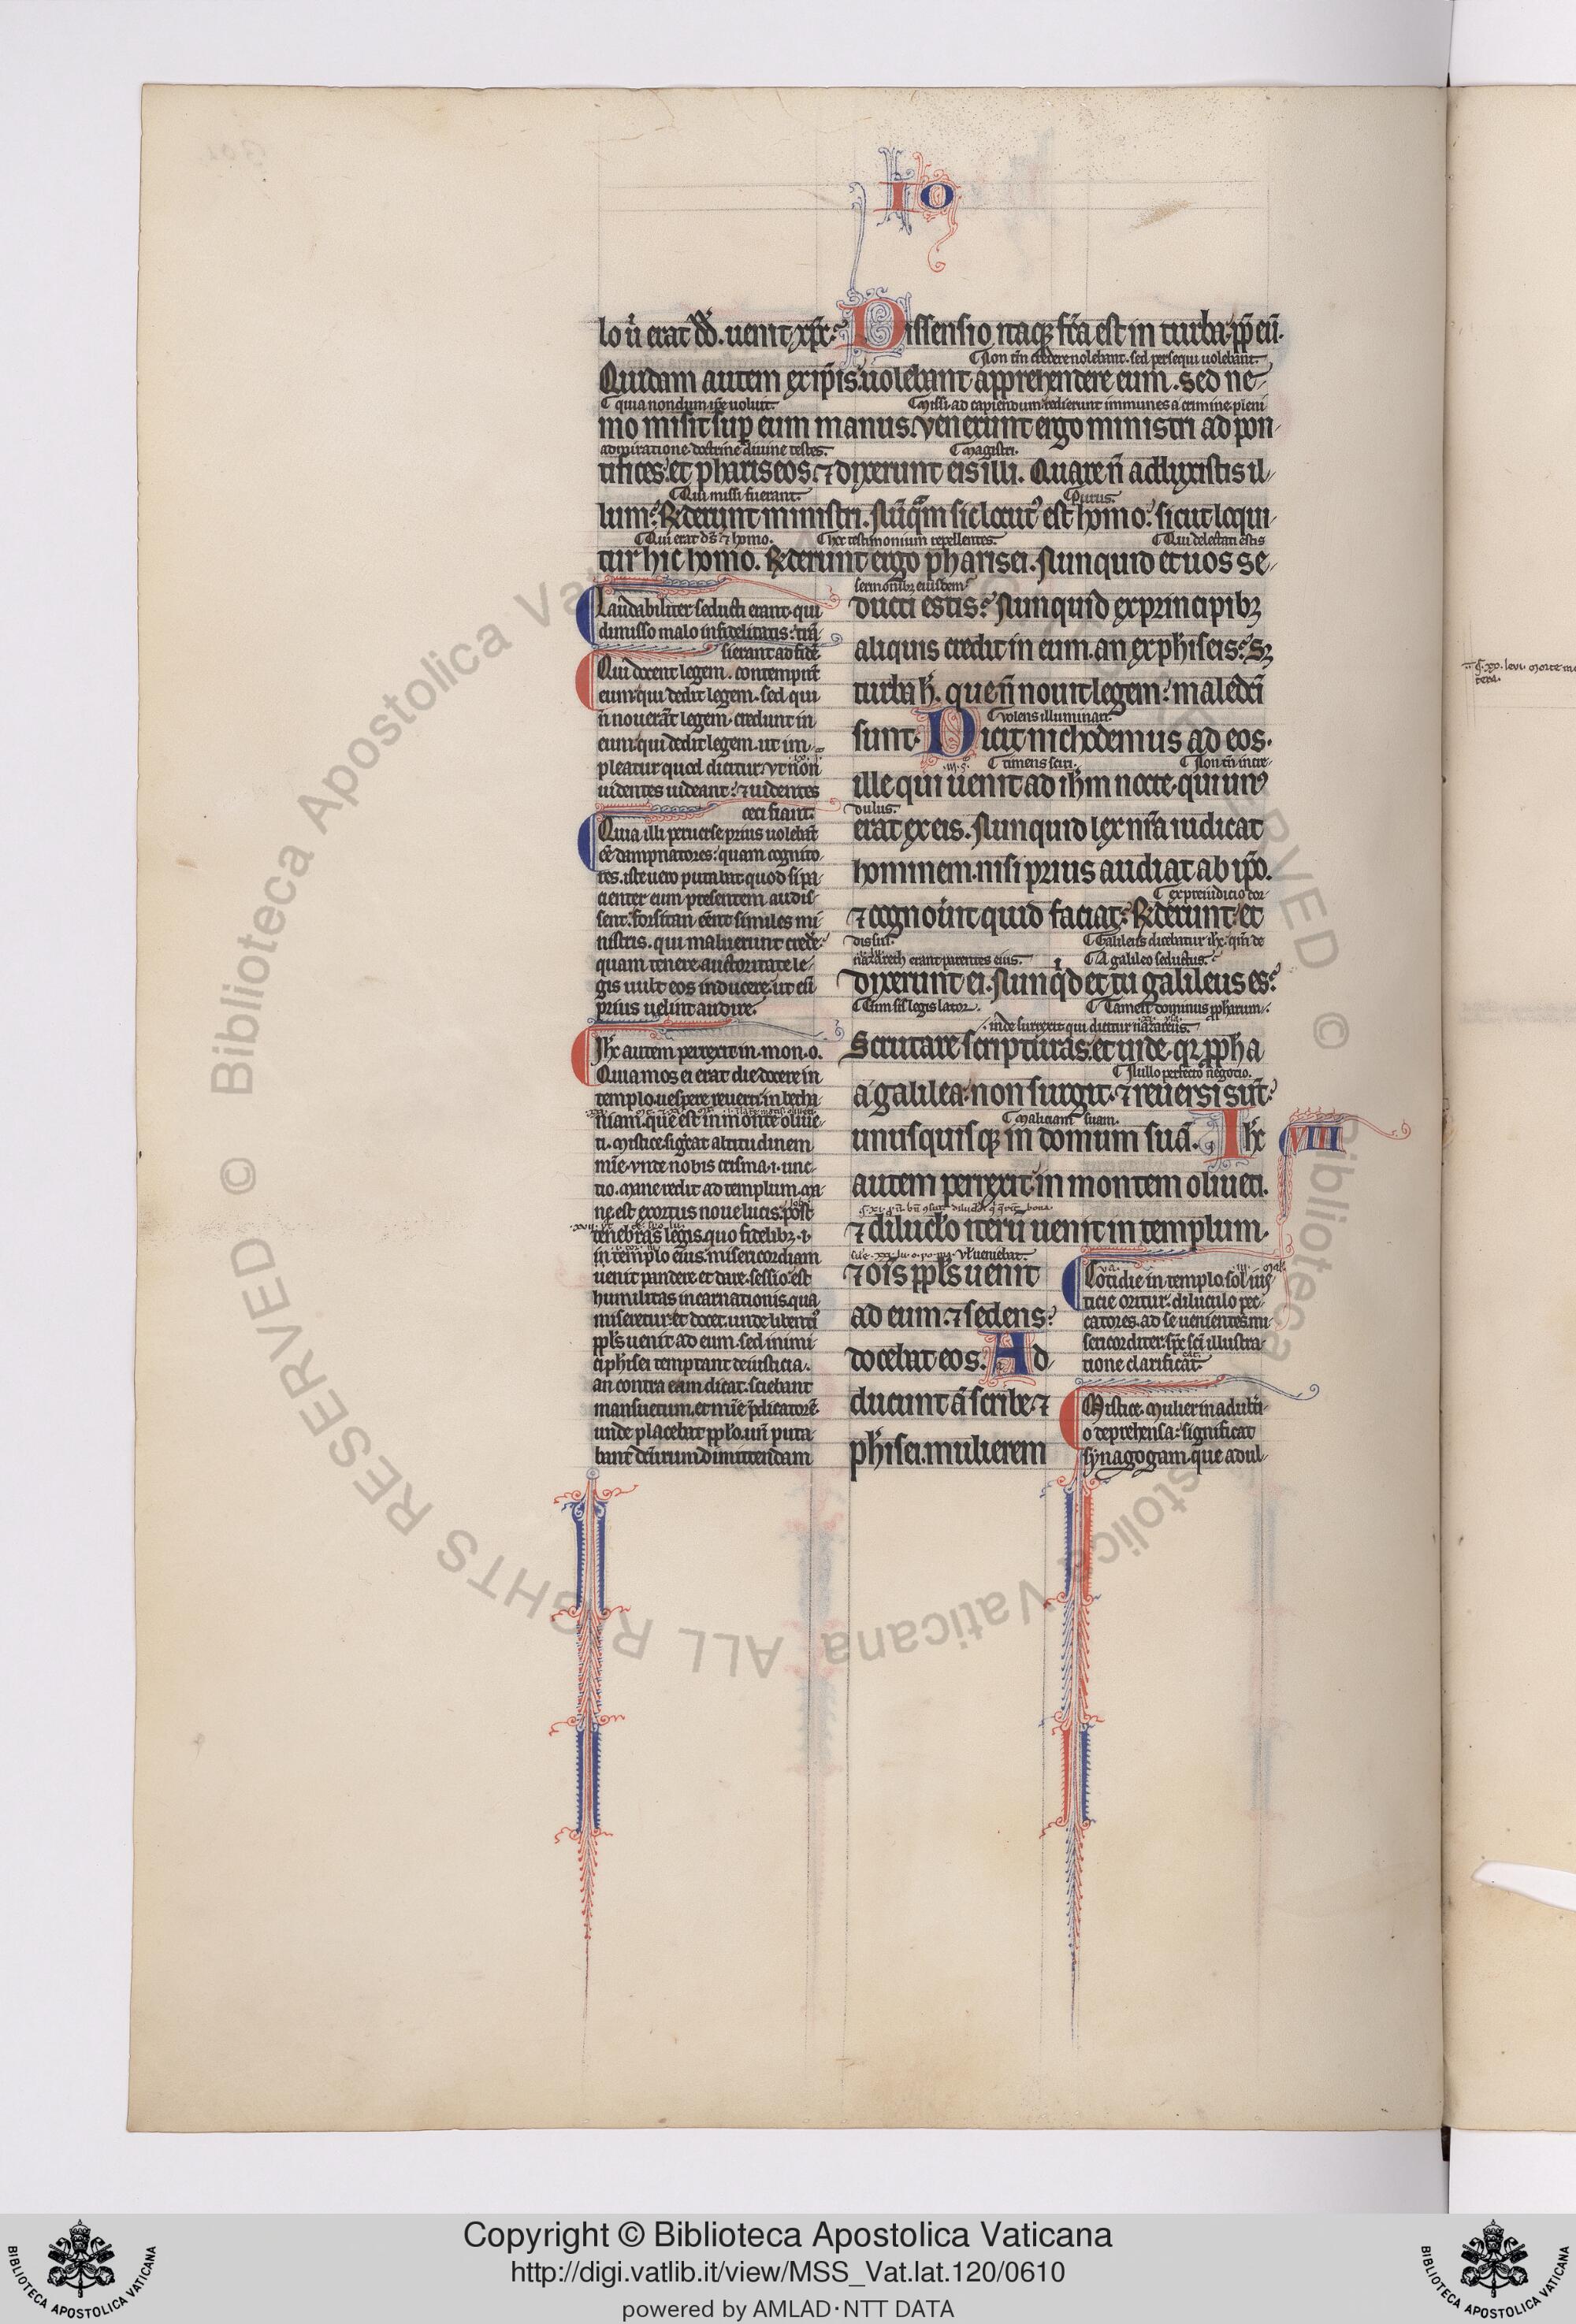 IO
lo ủ erat dd̃. uenit xp̃c. Dissensio itaqꝫ fc̃a est in turba ꝓp̃ eũ.
⸿ Non tm̃ credere nolebant. sed persequi uolebant.
Quidam autem ex ip̃is uolebant apprehendere eum. sed ne-
⸿ quia nondum ip̃e uoluit.
⸿ Missi ad capiendum redierunt immunes a crimine. pleni
mo misit suꝑ eum manus. venerunt ergo ministri ad pon-
admiratione doctrine diuine testes.
⸿ Magistri.
tifices et phariseos. ⁊ dixerunt eis illi. Quare ñ adduxistis il-
⸿ Qui missi fuerant.
⸿ Purus.
lum. R̃derunt ministri. Nũq̃m sic locutꝰ est homo. sicut loqui-
⸿ Qui erat ds̃ ⁊ homo.
⸿ hec testimonium repellentes.
⸿ Qui delectati estis
tur hic homo. R̃derunt ergo pharisei. Nunquid et uos se-
sermonibꝫ eiusdem
ducti estis. Nunquid ex principibꝫ
aliquis credit in eum. an ex phiseis. Sꝫ
turba h̃. que ñ nouit legem. maledc̃i
⸿ volens illuminari.
sunt. Dicit nichodemus ad eos.
.iij. g.
⸿ timens sciri.
⸿ Non tñ incre-
ille qui uenit ad ih̃m nocte. qui unꝰ
dulus.
erat ex eis. Nunquid lex nr̃a iudicat
hominem. nisi prius audiat ab ip̃o.
⸿ ex preiudicio cor-
⁊ cognoũit quid faciat. R̃derunt et
dis sui.
⸿ Galileus dicebatur ih̃c. qm̃ de
nazareth erant parentes eius.
⸿ A galileo seductus.
dixerunt ei. Nunqid et tu galileus es.
⸿ Cum sis legis lator.
⸿ Tamẽ dominus ꝓpharum.
inde surrexit qui dicitur nazareus.
Scrutare scripturas. et uide. qꝛ ꝓpha
⸿ Nullo perfecto negotio.
a galilea non surgit. ⁊ reuersi sũt
⸿ maliciam suam.
unusquisqꝫ in domum suã. Ih̃c
VIII
autem perrexit in montem oliueti.
⁊ diluclo iterũ uenit in templum.
vl ueniebat.
⁊ oĩs ppl̃s uenit
ad eum. ⁊ sedens
docebat eos. Ad-
ducunt ã scribe ⁊
phisei. mulierem
Laudabiliter seducti erant. qui
dimisso malo infidelitatis: trã-
sierant ad fidẽ
Qui docent legem. contempnũt
eum qui dedit legem. sed qui
ñ nouerãt legem. credunt in
eum qui dedit legem. ut im-
pleatur quod dicitur. vt non
uidentes uideant. ⁊ uidentes
ceci fiant.
Quia illi peruerse prius uolebãt
eẽ dampnatores. quam cognito-
res. iste uero putabat quod si pa-
cienter eum presentem audis-
sent. forsitan eẽnt similes mi-
nistris. qui maluerunt credẽ
quam tenere. auctoritate le-
gis uult eos inducere. ut eũ
prius uelint audire.
Ih̃c autem perrexit in mon. o.
Quia mos ei erat die docere in
templo. uespere reuerti in betha-
niam. que est in monte oliue-
ti. Mistice. sig̃cat altitudinem
mĩe. vnde nobis crisma .i. unc-
tio. mane redit ad templum. ma-
ne est exortus noue lucis. post
tenebras legis. quo fidelibꝫ .i.
in templo eius. misericordiam
uenit pandere. et dare. sessio est
humilitas incarnationis. qua
miseretur. et docet. unde libentiꝰ
ppl̃s uenit ad eum. sed inimi-
ci phisei temptant de iusticia.
an contra eam dicat. sciebant
mansuetum. et mĩe p̃dicatorẽ.
unde placebat ppl̃o. uñ puta-
bant dc̃urum dimittendam
Cotidie in templo. sol ius-
ticie oritur. diluculo pec-
catores. ad se uenientes mi-
sericorditer. sp̃c sc̃i illustra-
tione clarificat.
Mistice. Mulier in adult̃i-
o deprehensa: significat
synagogam. que adul-
Copyright © Biblioteca Apostolica Vaticana
http://digi.vatlib.it/view/MSS_Vat.lat.120/0610
powered by AMLAD·NTT DATA
BIBLIOTECA APOSTOLICA VATICANA
BIBLIOTECA APOSTOLICA VATICANA
© Biblioteca Apostolica Vaticana ALL RIGHTS RESERVED